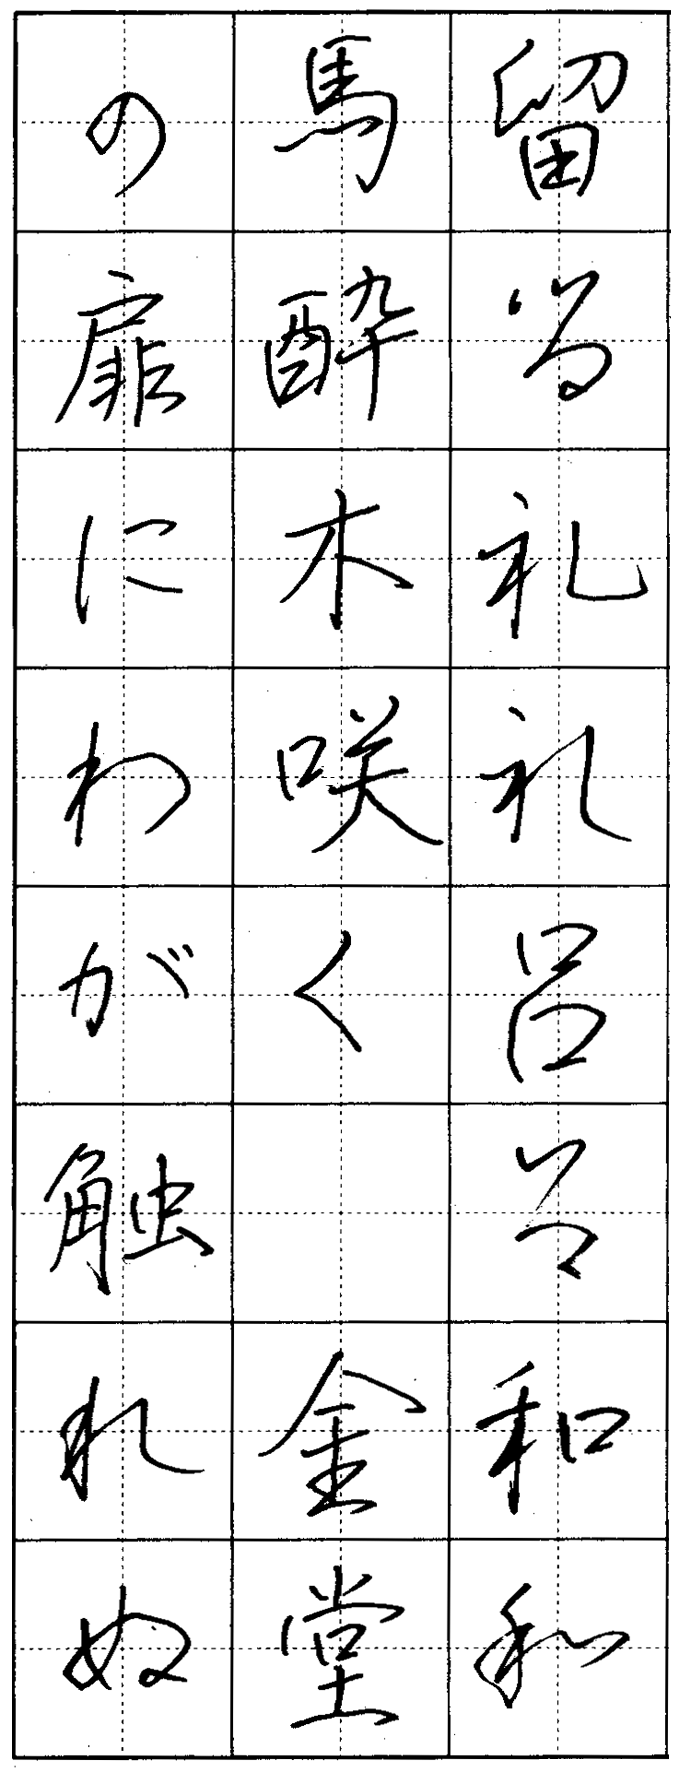 留る礼礼呂呂和和
馬酔木咲く 金堂
の扉にわが触れぬ